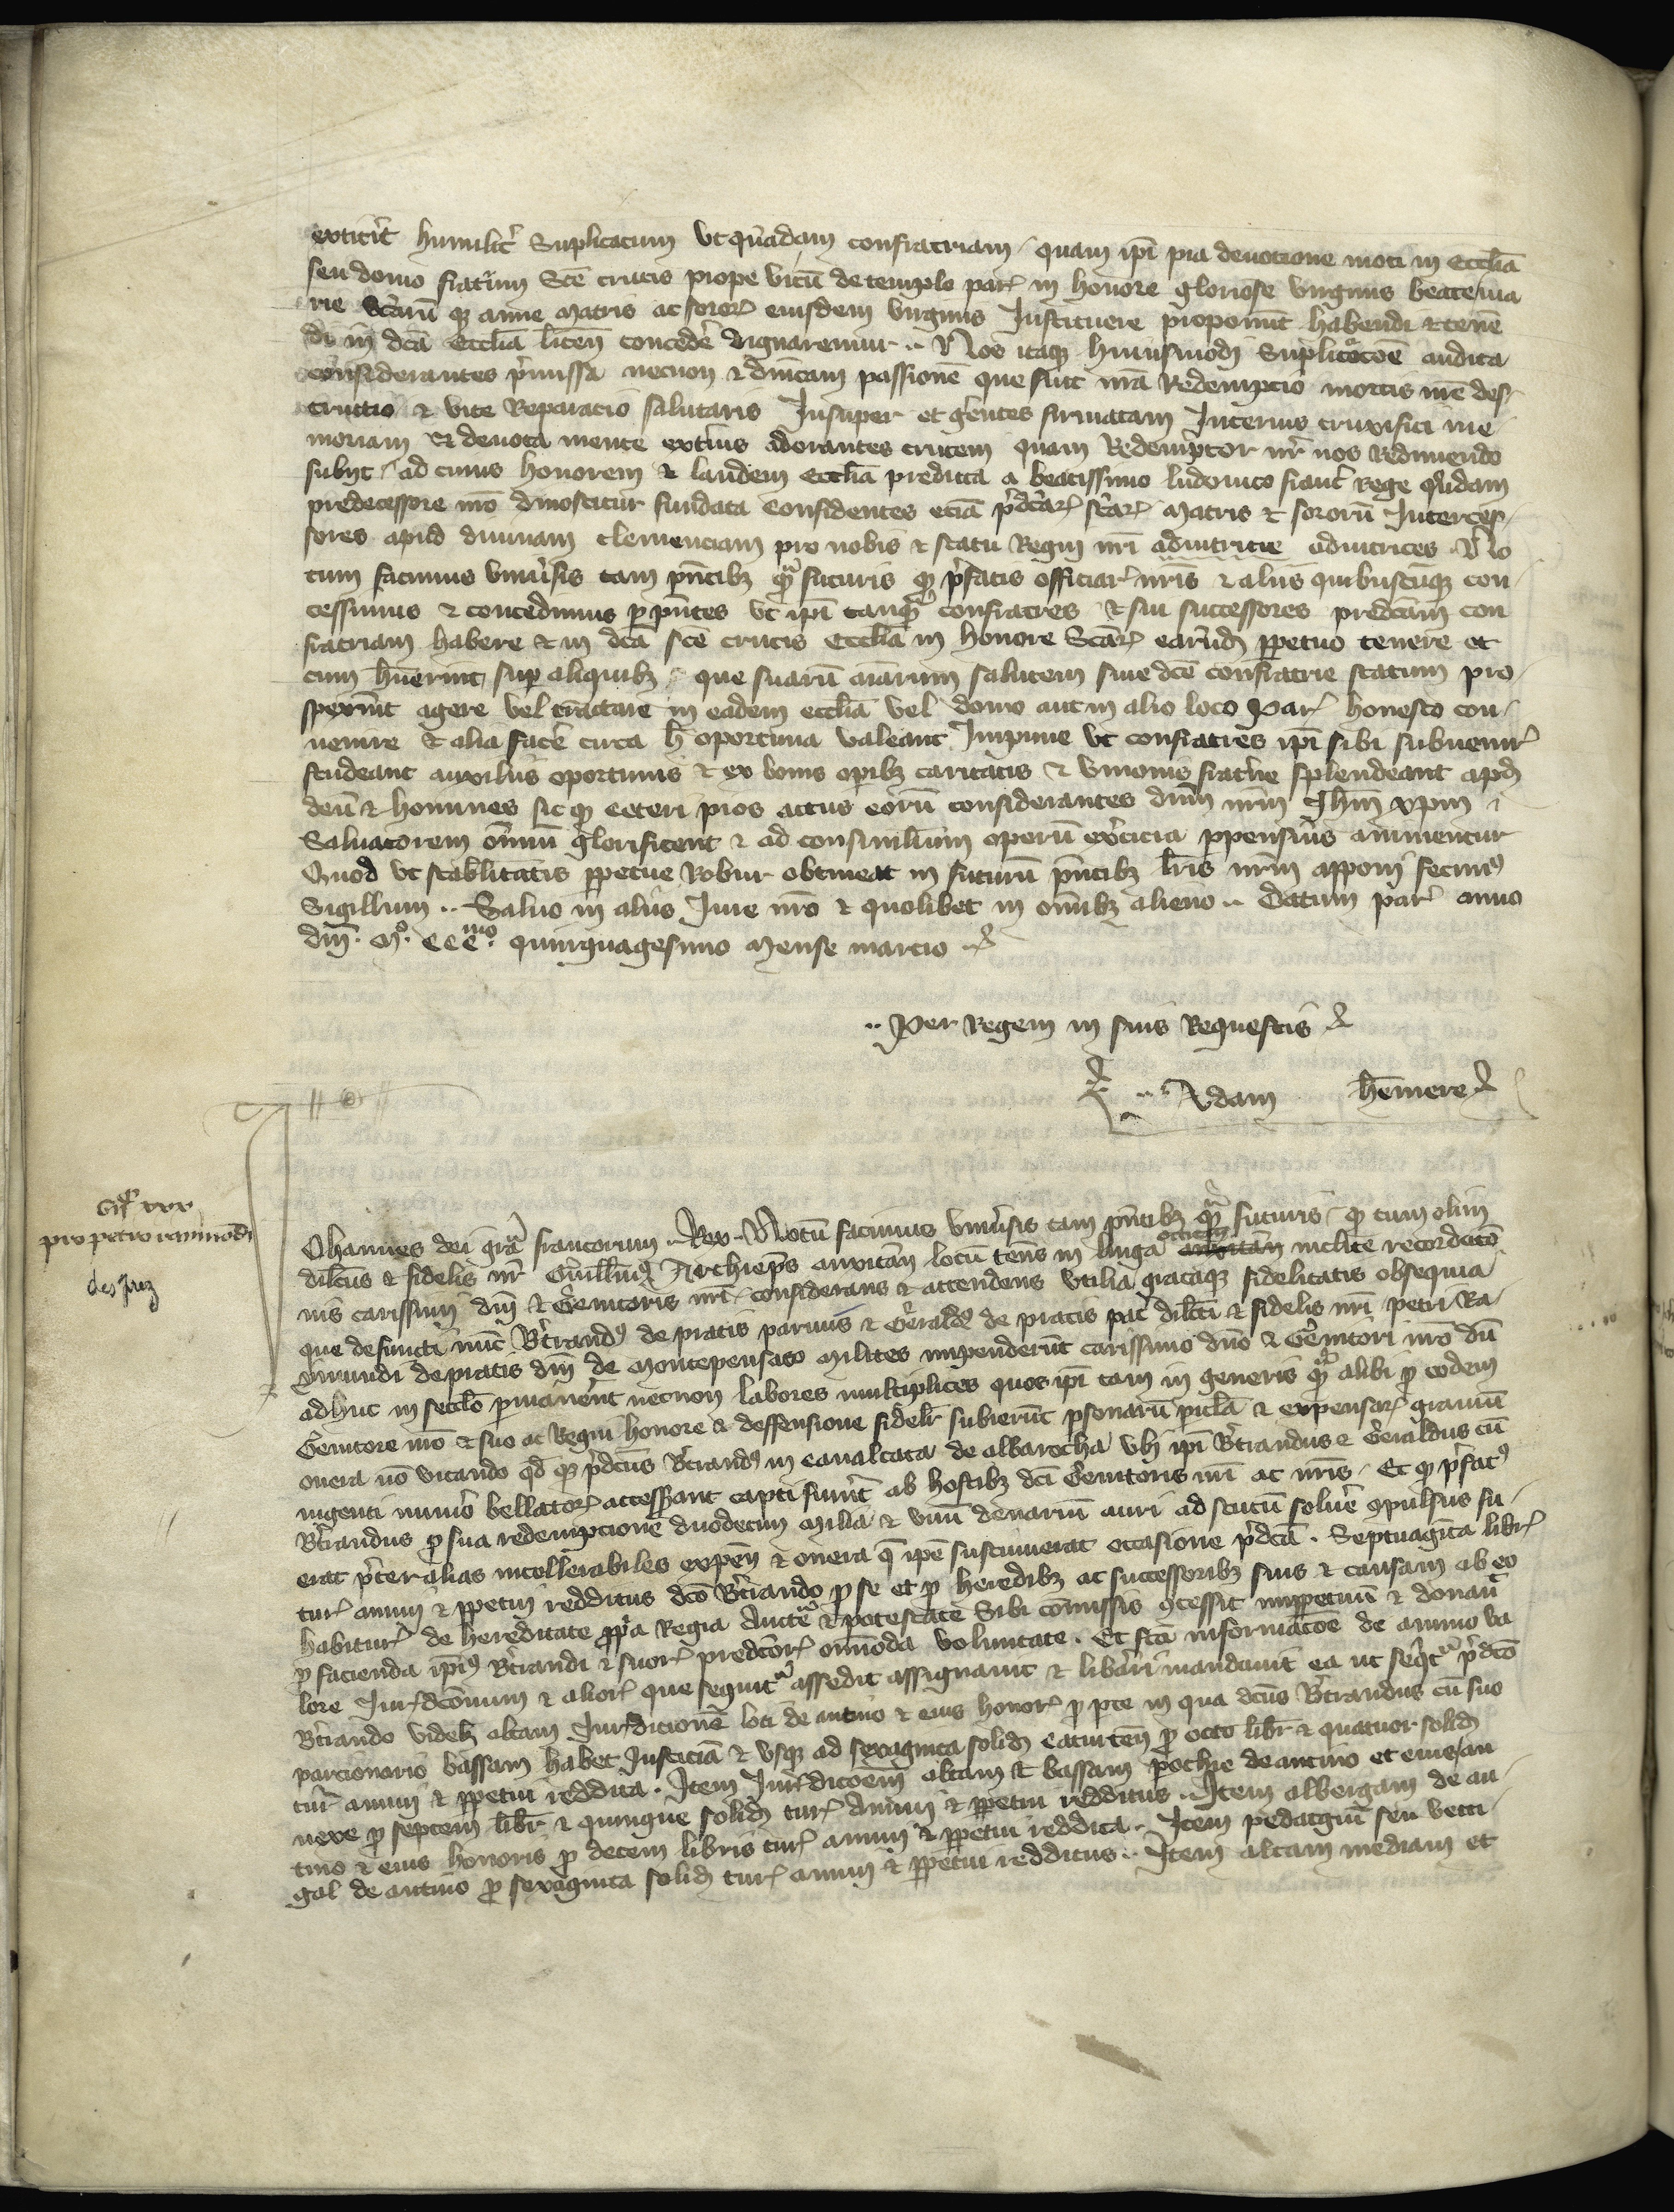 extitit humilit supplicatum ut quadam confratriam quam ipi pia devotione moti in Ecclia
seu domo fratrum Sce crucis prope vicu de templo par in honore gloriose virginis beate ma
rie Scaru q anne matris ac soror eiusdem virginis Instituere proponut habendi et tene
di in dca Ecclia licen concede dignaremur Nos itaq huiusmodi supplicacoe audita
considerantes pmissa necnon et dnicam passione que fuit nra Redempcio mortis nre des
tructio et vite Reparacio salutaris Insuper et gentes firmatam Interius cruxifici me
moriam et devota mente extius adorantes crucem quam Redemptor nr nos redimendo
subiit ad cuius honorem et laudem Ecclia predicta a beatissimo ludovico franc Rege quda
predecessore nro dinoscitur fundata Confidentes ecia pdcar scar matris et sororu Interces
sores apud divinam clemenciam pro nobis et statu Regni nri adiutricie adiutrices No
tum facimus univsis tam pntib q futuris q pfatis officiar nris et aliis quibuscuq con
cessimus et concedimus p pntes ut ipi tanq confratres et sui successores predcam con
fratriam habere et in dca sce crucis Ecclia in honore Scar earud ppetuo tenere et
cum huerint sup aliquib que suaru aiarum salutem sive dce confratrie statum pro
spexint agere vel tractare in eadem ecclia vel domo aut in alio loco Par honesto con
venire et alia face circa h oportuna valeant Impune ut confratres ipi sibi subvenir
studeant auxiliis oportunis et ex bonis opib caritatis et unionis frathe splendeant apd
deu et homines sic q ceteri pios actus eoru considerantes dnm nrm Ihm xpm
Salvatorem omiu glorificent et ad consimilium operu excicia ppensius animentur
Quod ut stabilitatis ppetue Robur obtineat in futuru pntib lris nrm apponi fecim
Sigillum Salvo in aliis Iure nro et quolibet in omib alieno Datum par anno
dni mo CCCmo quinquagesimo mense marcio
Per Regem in suis Requestis
Adam hemere
pro petro raimodi
des prez
Ohannes dei gra francorum Rex Notu facimus univsis tam pntib q futuris q cum olim
dilcus et fidelis nr Guillm Archieps auxitan locu tens in linga occitan auxitan inclite recordaco
nis carissimi dni et Genitoris nri considerans et attendens utilia grataq fidelitatis obsequia
que defuncti nuc Btrand de pratis parvus et Gerald de pratis pat dilcti et fidelis nri petri Ra
ymundi de pratis dni de montepensato milites impenderut carissimo dno et Genitori nro du
adhuc in seclo pmanent necnon labores multiplices quos ipi tam in generis q alibi p eodem
Genitore nro et suo ac Regni honore et deffensione fidelr subierut psonaru picla et expensar graviu
onera no vitando qd q pdcus Btrand in cavalcata de albarocha ubi ipi Btrandus et Geraldus cu
ingenti numo bellator accessant capti funt ab hostib dci Genitoris nri ac nris Et q pfat
Btrandus p sua redempcione duodecim milia et unu denariu auri ad scutu solve opulsus fu
erat pter alias intollerabiles expen et onera q ipe sustinuerat occasione pdca Septuaginta libr
tur annui et ppetui redditus dco Btrando p se et p heredib ac successorib suis et causam ab eo
habitur de hereditate ppa Regia aucte et potestate sibi comissis ocessit imppetuu et donavt
p facienda ipi Btrandi et suor predcor omoda voluntate Et fca informacoe de annuo va
lore Iurisdconum et alior que sequnt assedit assignavit et libari mandavit ea ut seqt pdco
Btrando videl altam Iurisdictione loci de antino et eius honor p pte in qua dcus Btrandus cu suo
parcionario bassam habet Iusticia et usq ad sexaginta solid eatuiten p octo libr et quatuor solid
tur annui et ppetui reddita Item Iurisdicoem altam et bassam pochie de antino et eius an
nexe p septem libr et quinque solid tur annui et ppetui redditus Item albergam de an
tino et eius honoris p decem libris tur annui et ppetui reddita Item pedatgiu seu vecti
gal de antino p sexaginta solid tur annui et ppetui redditus Item altam mediam et